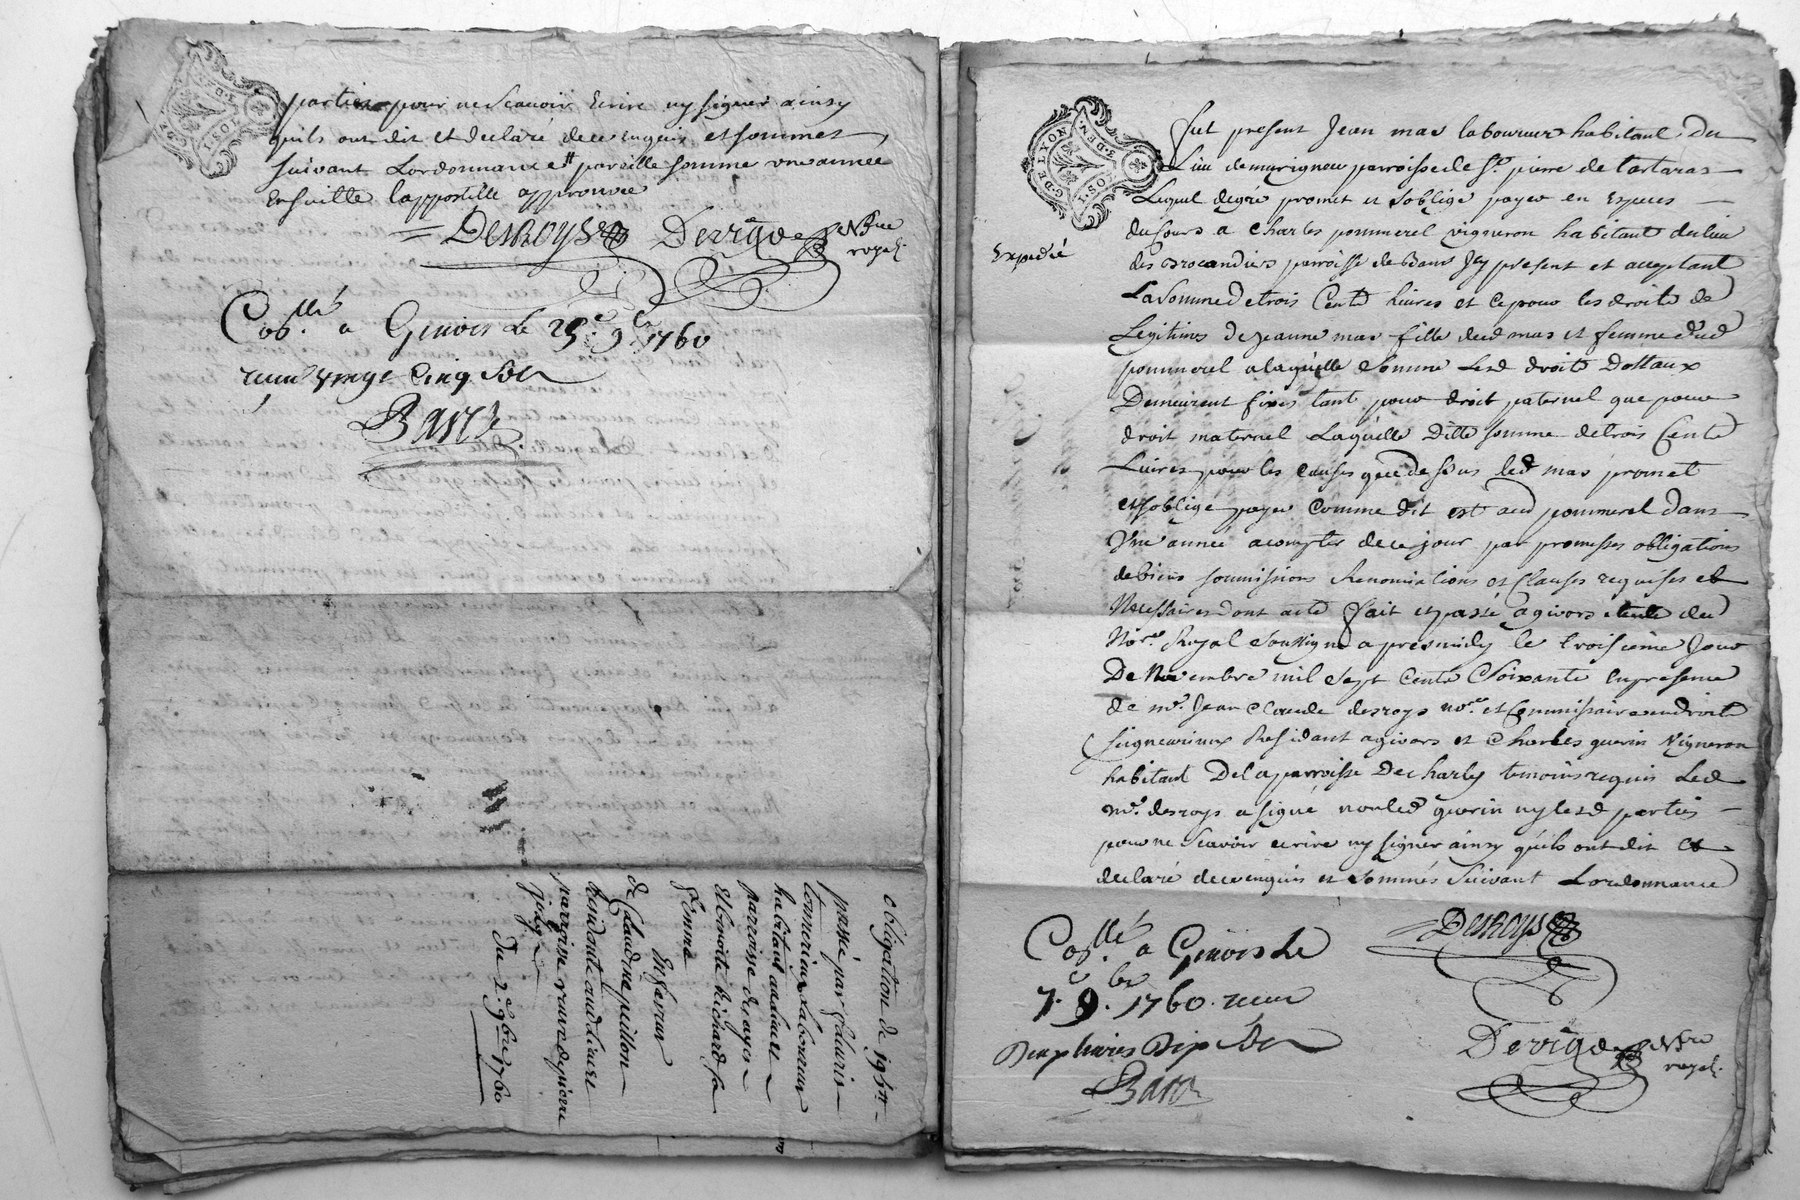 parties pour ne Scavoir Ecrire ny signer ainsy
quils ont dit et declaré de ce enquis et sommes
suivant Lordonnance pareille somme une année
Ensuitte lappostille approuvée
DESROYS Devigo Nore
royal.
Coll.lé a Givors Le 25.e 9.bre 1760
receu vingt Cinq Sols
BAROU
obligation de 195tt
passé par
habitant audit lieu
parroisse de
et benoite Richard sa
femme
En faveur
de Claudine peillon
Residente audit lieu et
parroisse veuve de pierre
Du 2.e 9bre 1760
G. DE LYON
3. DEN.
1. SOL
Fut present Jean mas laboureur habitant du
Lieu de murignou parroisse de St. pierre de tartaras
Lequel de gré promet et soblige payer en Especes
du Cours a Charles pommerel vigneron habitant du lieu
des parroisse de Icy present et acceptant
La Somme de trois Cents livres et ce pour les droits de
Legitime de jeanne mas fille dud mas et femme dud
pommerel a laquelle Somme Lesd droits Dottaux
Demeurent fixés tant pour droit paternel que pour
droit maternel Laquelle Ditte somme de trois Cents
Livres pour les causes que dessus led mas promet
et soblige payer Comme dit est aud pommerel dans
Une année a compter de ce jour par promesses obligations
de biens soumissions Renonciations et Clauses requises et
Necessaires dont acte fait et passé a givors etude du
No.re Royal Soussigné apres midy le troisieme Jour
De Novembre mil Sept Cents Soixante En presence
de m.e Jean Claude desroys no.re et Commissaire en droits
seigneuriaux Residant a givors et Charles guerin Vigneron
habitant De la parroisse De Charly temoins requis Led
m.e desroys a signé non led guerin ny lesd parties
pour ne Scavoir ecrire ny signer ainsy quils ont dit et
declaré de ce enquis et sommés Suivant Lordonnance
Expedié
DESROYS
Coll.lé a Givors Le
7.e 9.bre 1760. receu
Deux livres Dix Sols
Barou
Devigo Nre
royal.